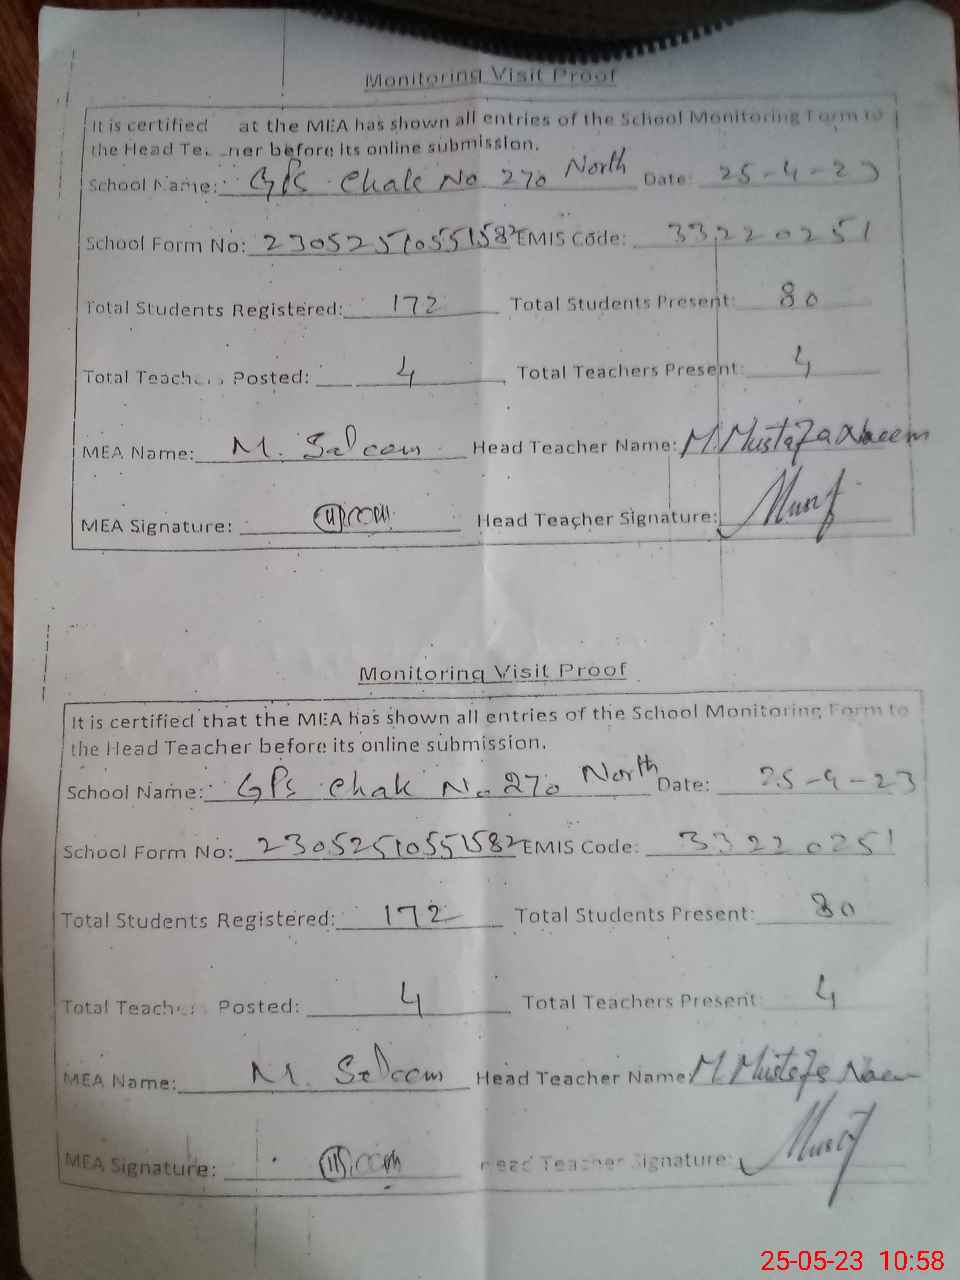 Monitoring Visit Proof
It is certified at the MEA has shown all entries of the School Monitoring Form to
the Head Te ner before its online submission.
School Name: GPS Chak No 270 North Date: 25-4-23
School Form No: 23052510551582 EMIS Code: 33220251
Total Students Registered: 172 Total Students Present: 80
Total Teachers Posted: 4 Total Teachers Present: 4
MEA Name: M. Saleem Head Teacher Name: M. Mustafa Naeem
MEA Signature: Head Teacher Signature:
Monitoring Visit Proof
It is certified that the MEA has shown all entries of the School Monitoring Form to
the Head Teacher before its online submission.
School Name: GPS Chak No 270 North Date: 25-4-23
School Form No: 23052510551582 EMIS Code: 33220251
Total Students Registered: 172 Total Students Present: 80
Total Teachers Posted: 4 Total Teachers Present: 4
MEA Name: M. Saleem Head Teacher Name M. Mustafa Naeem
MEA Signature: Head Teacher Signature:
25-05-23 10:58